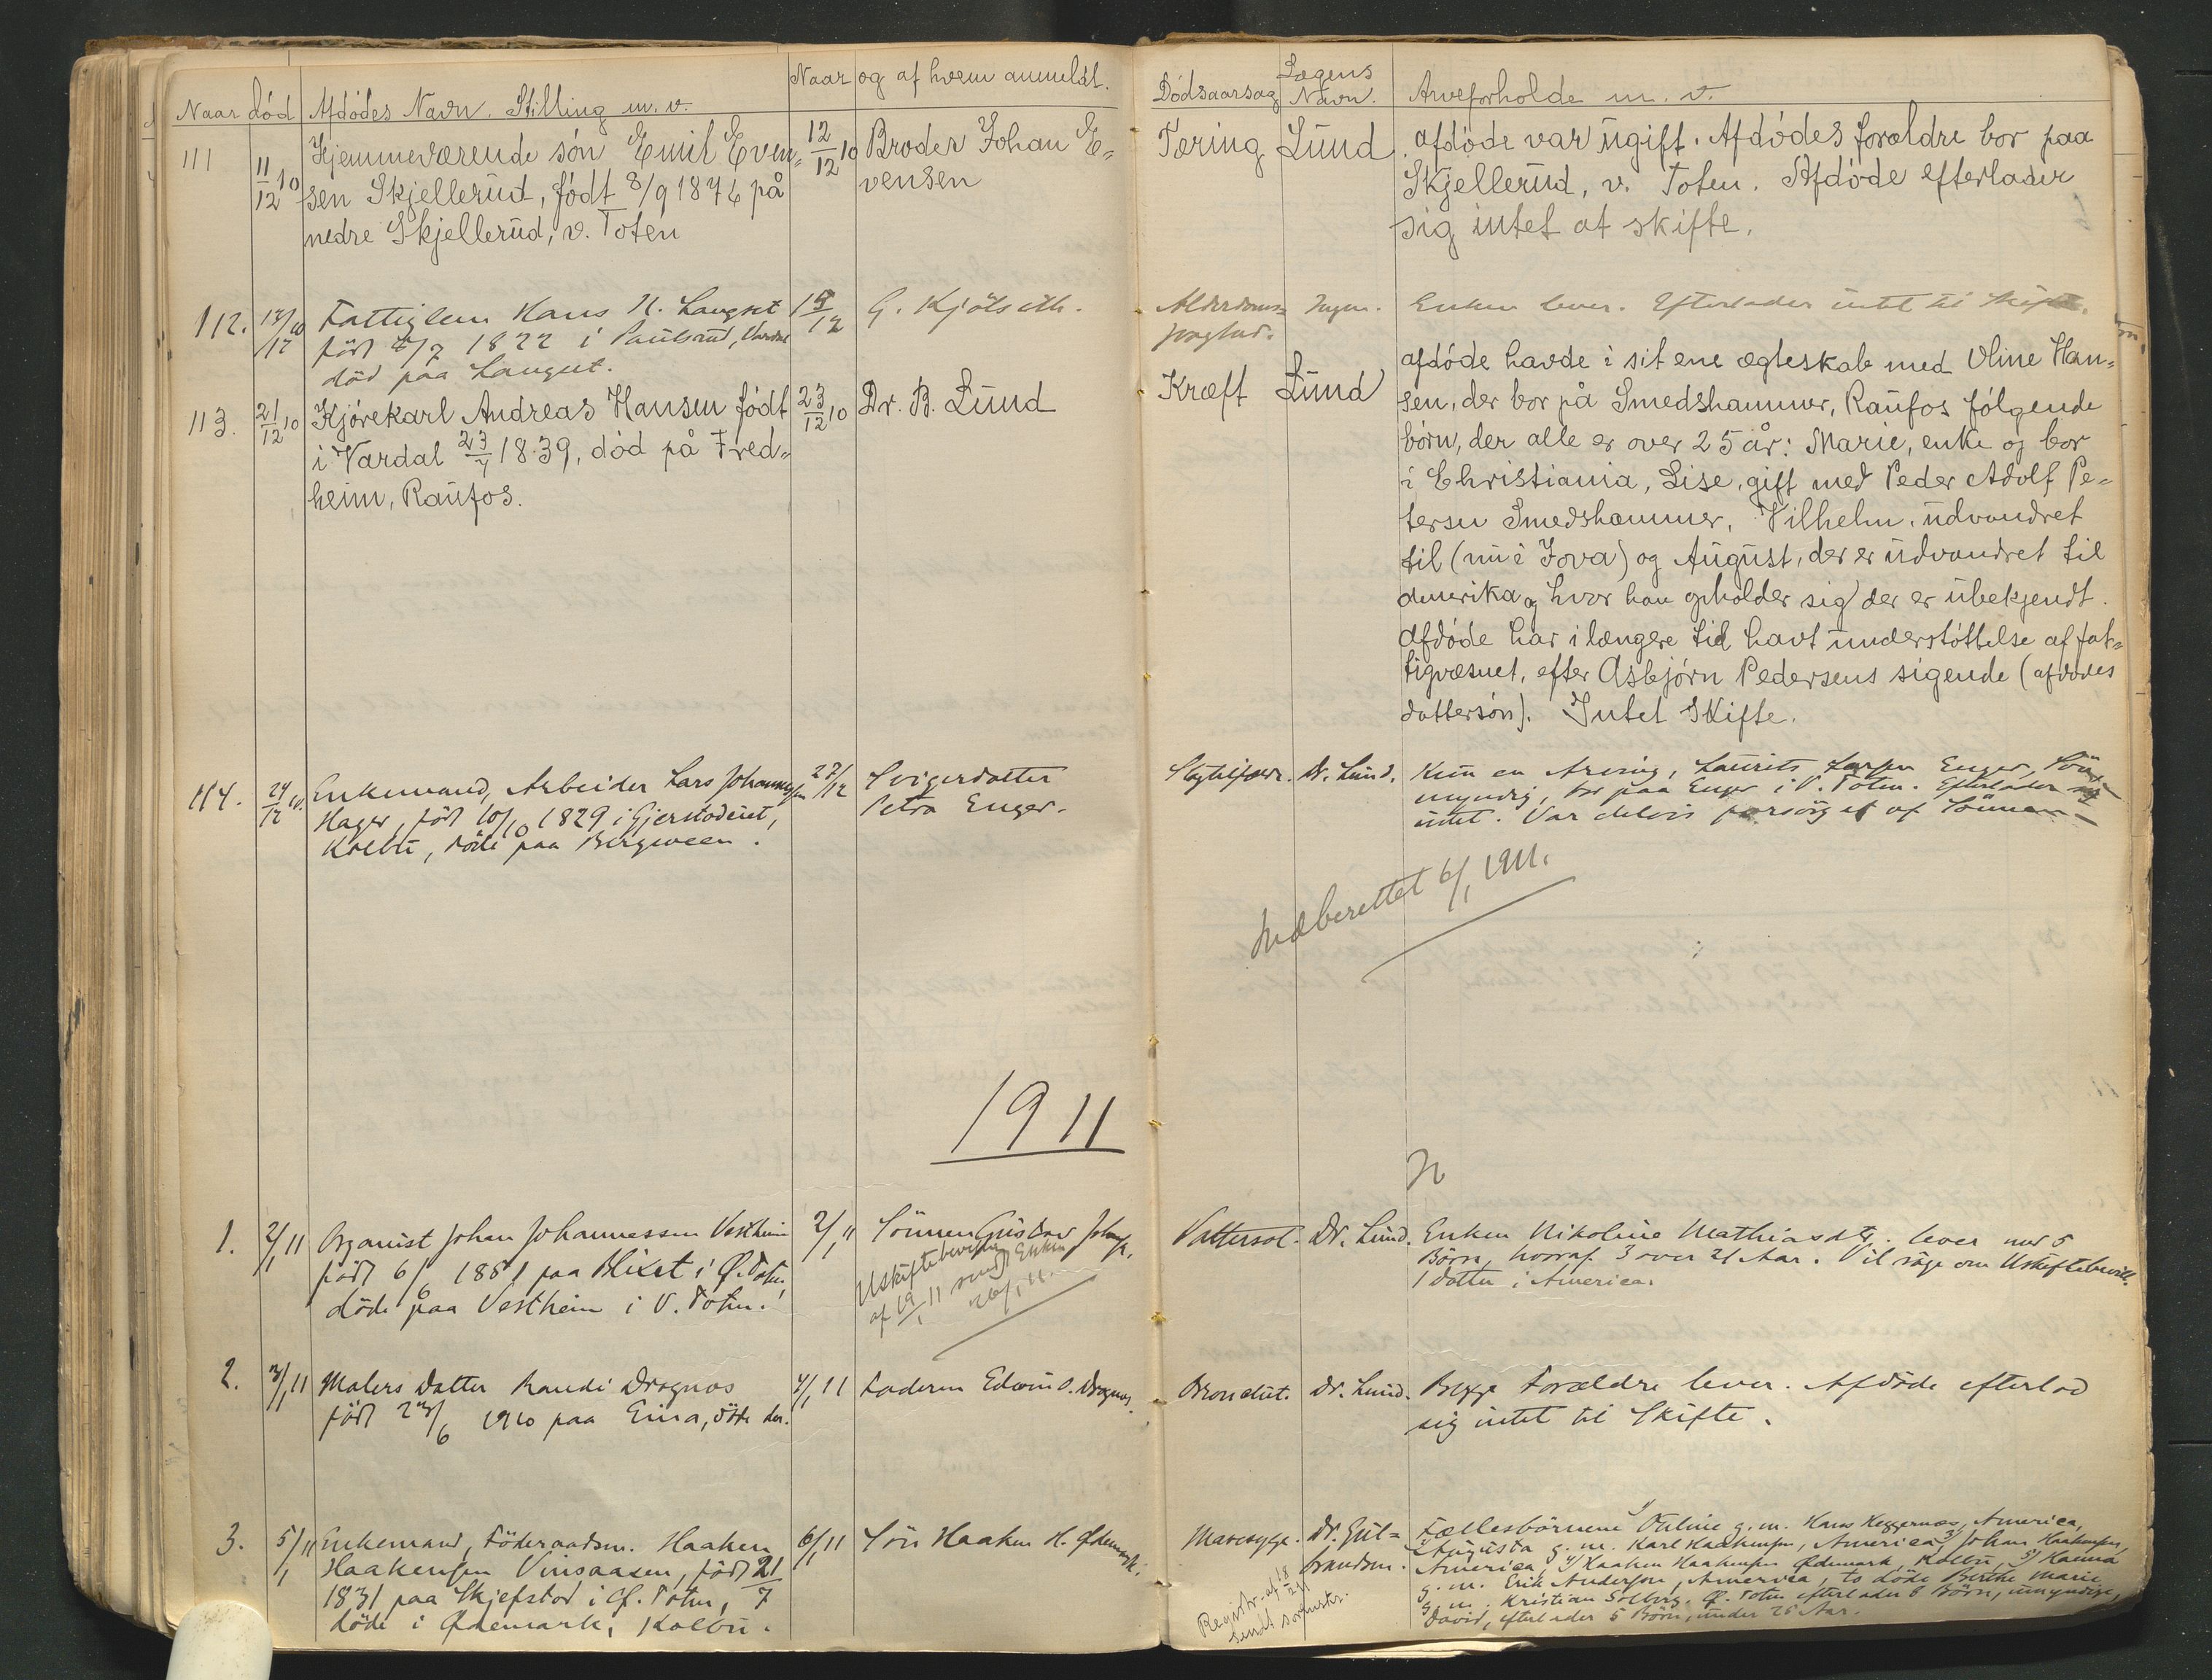 Naar død
Afdødes Navn. Stilling m. v.
Naar og af hvem anmeldt.
Dødsaarsag
Lægens
Navn.
Arveforholde m. v.
111
11/12 10
Hjemmeværende søn Emil Even-
sen Skjellerud, født 8/9 1876 på
nedre Skjellerud, v. Toten
12/12 10
Broder Johan E-
vensen
Tæring
Lund
afdøde var ugift. Afdødes forældre bor paa
Skjellerud, v. Toten. Afdøde efterlader
sig intet at skifte.
112.
Fattiglem Hans H. Langset
født 1822 i Paulsrud, Vardal
død paa Langset.
G. Kjølseth.
Alderdoms-
Ingen.
Enken lever. Efterlader intet til Skifte.
113.
21/12 10
Kjørekarl Andreas Hansen født
i Vardal 23/7 1839, død på Fred-
heim, Raufos.
23/12 10
Dr. B. Lund
Kræft
Lund
afdøde havde i sit ene ægteskab med Oline Han-
sen, der bor på Smedshammer, Raufos følgende
børn, der alle er over 25 år: Marie, enke og bor
i Christiania, Lise, gift med Peder Adolf Pe-
tersen Smedshammer, Vilhelm, udvandret
til (nu i Iova) og August, der er udvandret til
Amerika og hvor han opholder sig der er ubekjendt.
Afdøde har i længere tid havt understøttelse af fat-
tigvæsnet, efter Asbjørn Pedersens sigende (afdødes
dattersøn). Intet Skifte.
114.
24/12 10.
Enkemand, Arbeider Lars Johannessen
Hager, født 10/10 1829 i Gjerstadeiet,
Kolbu, døde paa Bergsveen.
27/12
Svigerdatter
Petra Enger.
Dr. Lund.
Kun en Arving, Laurits Larsen Enger, Søn,
myndig, bor paa Enger i V. Toten. Efterlader sig
intet. Var delvis forsørget af Sønnen
Indberettet 6/1 1911.
1911
1.
2/1 11
Organist Johan Johannessen Vestheim
født 6/6 1851 paa Blixet i Ø. Toten,
døde paa Vestheim i V. Toten.
2/1 11
Sønnen Gustav Johans.
Uskiftebevilling
af 19/1 11 sendt Enken
26/1 11.
Vattersot.
Dr. Lund.
Enken Nikoline Mathiasdtr. lever med 5
Børn, hvoraf 3 over 21 Aar. Vil søge om Uskiftebevill.
1 Datter i America.
2.
3/1 11
Malers Datter Randi Dragnæs
født 23/6 1910 paa Eina, døde der.
4/1 11
Faderen Edvin O. Dragnæs.
Dr. Lund.
Begge Forældre lever. Afdøde efterlod
sig intet til Skifte.
3.
5/1 11
Enkemand, Føderaadsm. Haaken
Haakensen Vinsaasen, født 21/7
1831 paa Skjefstad i Ø. Toten,
døde i Ødemark, Kolbu.
6/1 11
Søn Haaken H. Ødemark.
Mavesyge.
Dr. Gul-
brandsen.
Registr. af 18/2
sendt sorenskr.
Fællesbørnene 1) Ouline g. m. Hans Heggernæs, America,
2) Augusta g. m. Karl Haakensen, America, 3) Johan Haakensen,
America, 4) Haaken Haakensen Ødemark, Kolbu, 5) Hanna
g. m. Erik Andersen, America, to døde Berthe Marie
g. m. Kristian Solberg, Ø. Toten efterlader 8 Børn, umyndige,
David, efterlader 5 Børn, under 25 Aar.